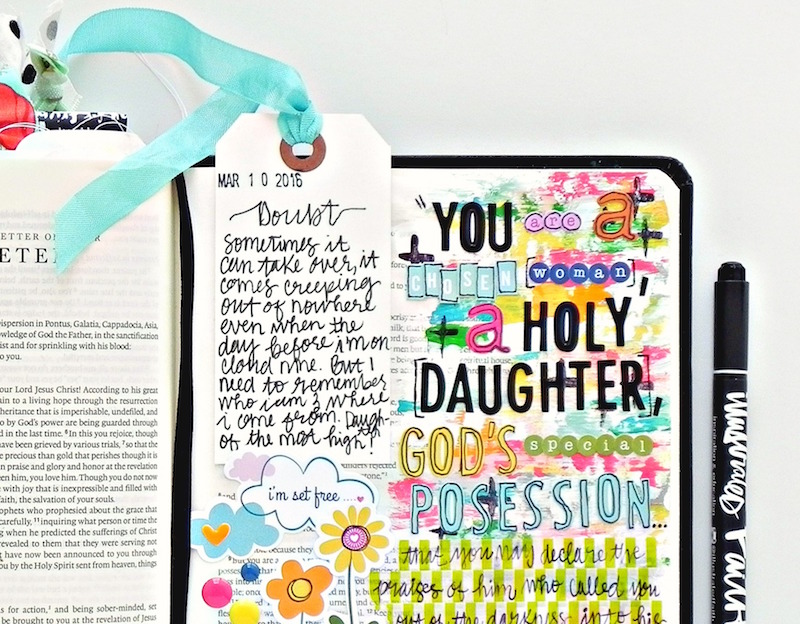 ispersion in Pontus, Galatia, Cappadocia, Asia,
wledge of God the Father, in the sanctification
ist and for sprinkling with his blood:
to you.
our Lord Jesus Christ! According to his great
ain to a living hope through the resurrection
nheritance that is imperishable, undefiled, and
o by God's power are being guarded through
d in the last time. 6 In this you rejoice, though
ave been grieved by various trials, 7 so that the
e precious than gold that perishes though it is
n praise and glory and honor at the revelation
een him, you love him. Though you do not now
with joy that is inexpressible and filled with
faith, the salvation of your souls.
prophets who prophesied about the grace that
carefully, 11 inquiring what person or time the
g when he predicted the sufferings of Christ
revealed to them that they were serving not
t have now been announced to you through
you by the Holy Spirit sent from heaven, things
s for action, and being sober-minded, set
be brought to you at the revelation of Jesus
MAR 10 2016
Doubt
sometimes it
can take over, it
comes creeping
out of nowhere
even when the
day before i'm on
cloud nine. But I
need to remember
who i am & where
i come from. Daugh-
of the most high!
i'm set free ....
"YOU are a
CHOSEN [woman],
a HOLY
[DAUGHTER],
GOD'S special
POSESSION...
that you may declare the
praises of him who called you
out of the darkness into his